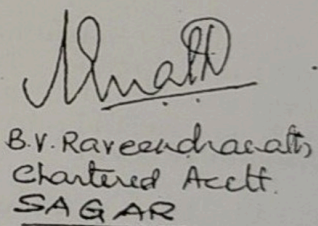 B.V. Raveendranath,
Chartered Acctt.
SAGAR